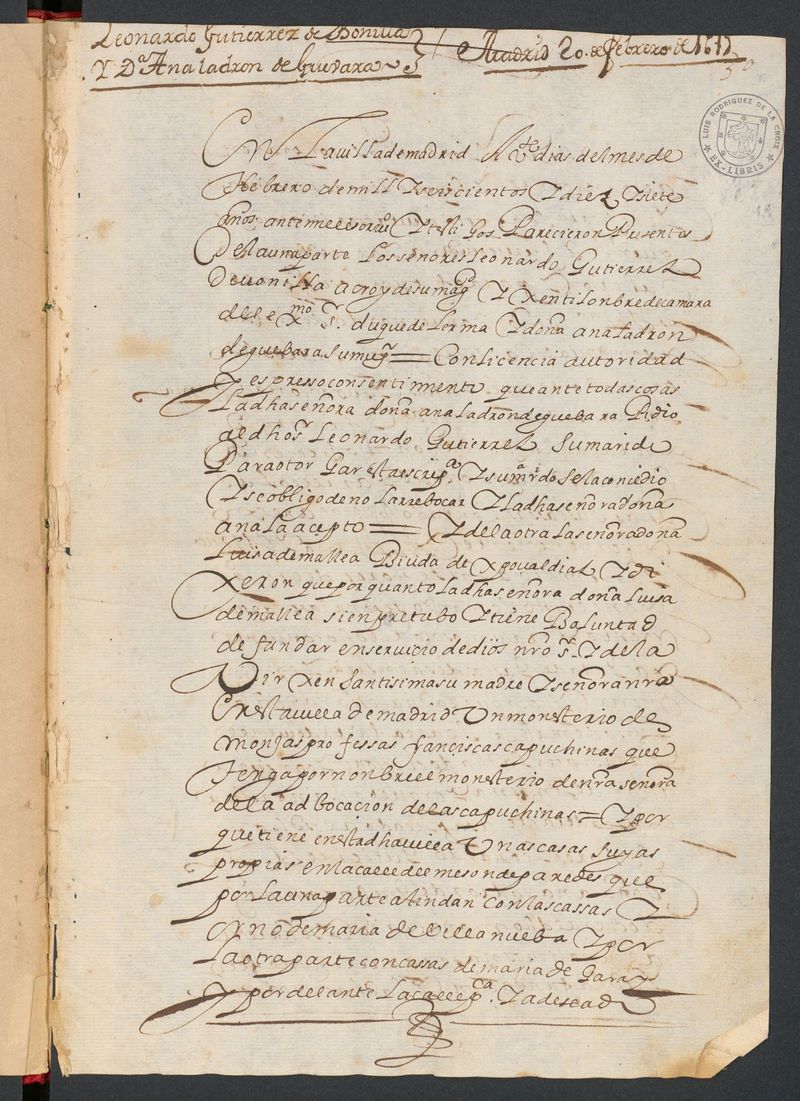 Leonardo Gutierrez de Bonilla
Y Dª Ana ladron de Guevara
Madrid 20 de febrero de 1617
50
LUIS RODRIGUEZ DE LA CROIX
EX-LIBRIS
En la villa de madrid A Vte dias del mes de
Hebrero de mill y seiscientos y diez y siete
años ante mi el esorivº y testigos Parecieron Presentes
De la una parte los señores leonardo Gutierrez
De vonilla acroy de su magd y xentilonbre de camara
del exmo Sr duque de lerma y doña ana ladron
de guebara su muger = Con licencia autoridad
y espresso consentimiento que ante todas cosas
la dha señora doña ana ladron de guebara Pidio
al dho sr leonardo Gutierrez su marido
Para otorgar esta escripª y su marido se la concedio
y se obligo de no la rrebocar y la dha señora doña
ana la acepto = y de la otra la señora doña
luisa de mallea Biuda de xpoval diaz y di
xeron que por quanto la dha señora doña luisa
de mallea sienpre tubo y tiene Boluntad
de fundar en servicio de dios nro sr y de la
Virxen santisima su madre y señora nra
En esta villa de madrid Un monesterio de
monjas professas franciscas capuchinas que
tenga por nonbre el monesterio de nra señora
de la adbocacion de las capuchinas = y por
que tiene en esta dha villa Unas casas suyas
propias en la calle del meson de paredes que
por la una parte alindan con las cassas y
orno de maria de billanueba y por
la otra parte con cassas de maria de garay
y por delante la calle pca y a deseado